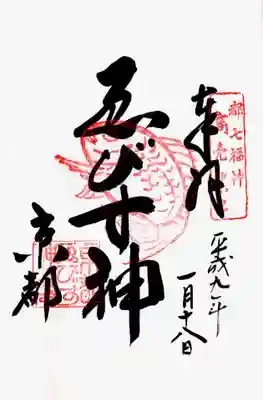 奉拝
都七福神
商売
平成九年
一月十八日
ゑびす神
京都